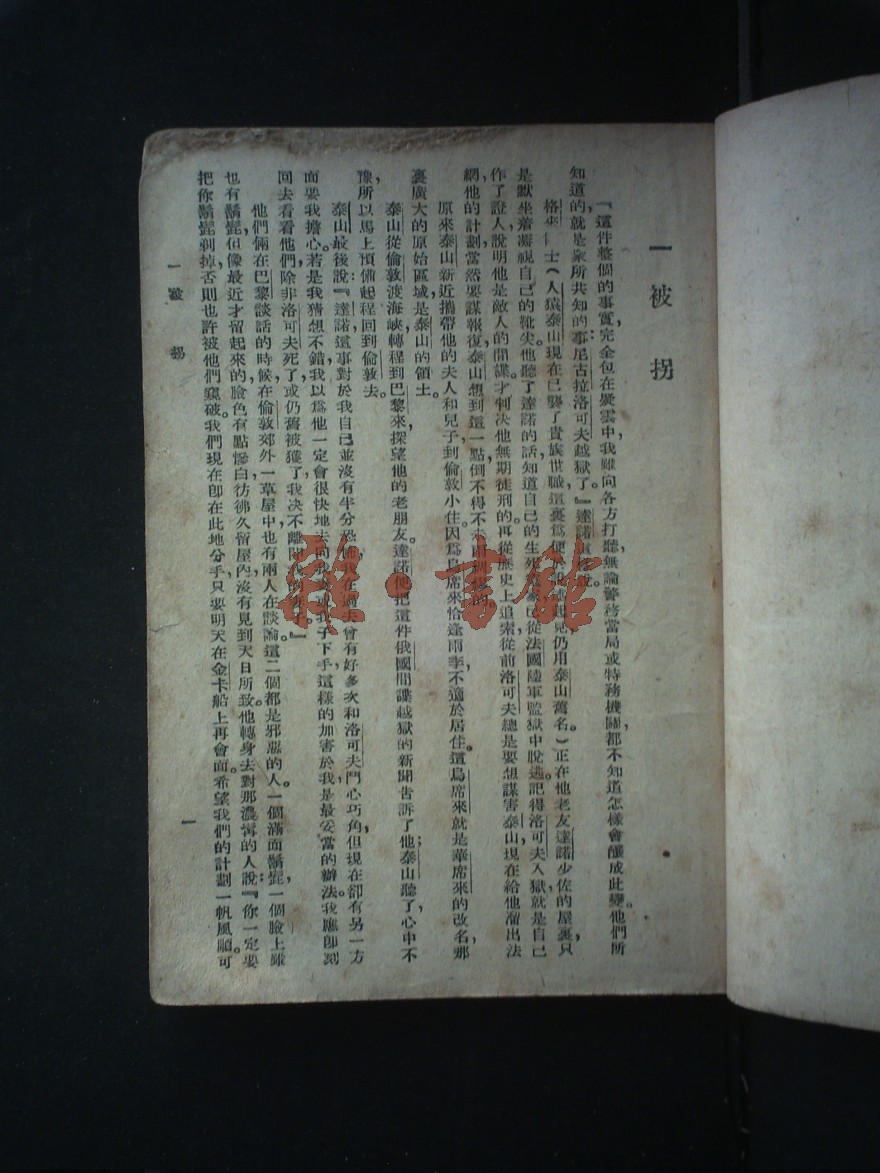 一 被 拐
『這件整個的事實完全包在疑雲中，我雖向各方打聽，無論警務當局或特務機關，都不知道怎樣會釀成此變。他們所
知道的，就是衆所共知的事：尼古拉洛可夫越獄了。』達諾
格來 士（人猿泰山現在已襲了貴族世職，這裏爲便 起見，仍用泰山舊名。）正在他老友達諾少佐的屋裏，只
是默坐着凝視自己的靴尖。他聽了達諾的話，知道自己的生死 已從法國陸軍監獄中脫逃。記得洛可夫入獄，就是自己
作了證人，說明他是敵人的間諜，才判決他無期徒刑的。再從歷史上追索，從前洛可夫總是要想謀害泰山，現在給他溜出法
網，他的計劃當然要謀報復。泰山想到這一點，倒不得不未雨
原來泰山新近攜帶他的夫人和兒子，到倫敦小住，因爲烏席來恰逢雨季，不適於居住。這烏席來就是華席來的改名，那
裏廣大的原始區域，是泰山的領土。
泰山從倫敦渡海峽轉程到巴黎來，探望他的老朋友。達諾便把這件俄國間諜越獄的新聞告訴了他；泰山聽了，心中不
豫，所以馬上預備起程回到倫敦去。
泰山最後說：『達諾，這事對於我自己並沒有半分恐 在過去曾有好多次和洛可夫鬥心巧角，但現在卻有另一方
面要我擔心。若是我猜想不錯，我以爲他一定會很快地去向我 或我子下手，這樣的加害於我，是最妥當的辦法。我應卽刻
回去看看他們，除非洛可夫死了，或仍舊被獲了，我決不離開 』
他們倆在巴黎談話的時候，在倫敦郊外一草屋中，也有兩人在談論。這二個都是邪惡的人。一個滿面鬍髭，一個臉上雖
也有鬍髭，但像最近才留起來的，臉色有點慘白，彷彿久留屋內，沒有見到天日所致。他轉身去對那濃鬍的人說：『你一定要
把你鬍髭剃掉，否則也許被他們窺破。我們現在卽在此地分手，只要明天在金卡船上再會面。希望我們的計劃一帆風順。可
一 被 拐
一
雅·書館